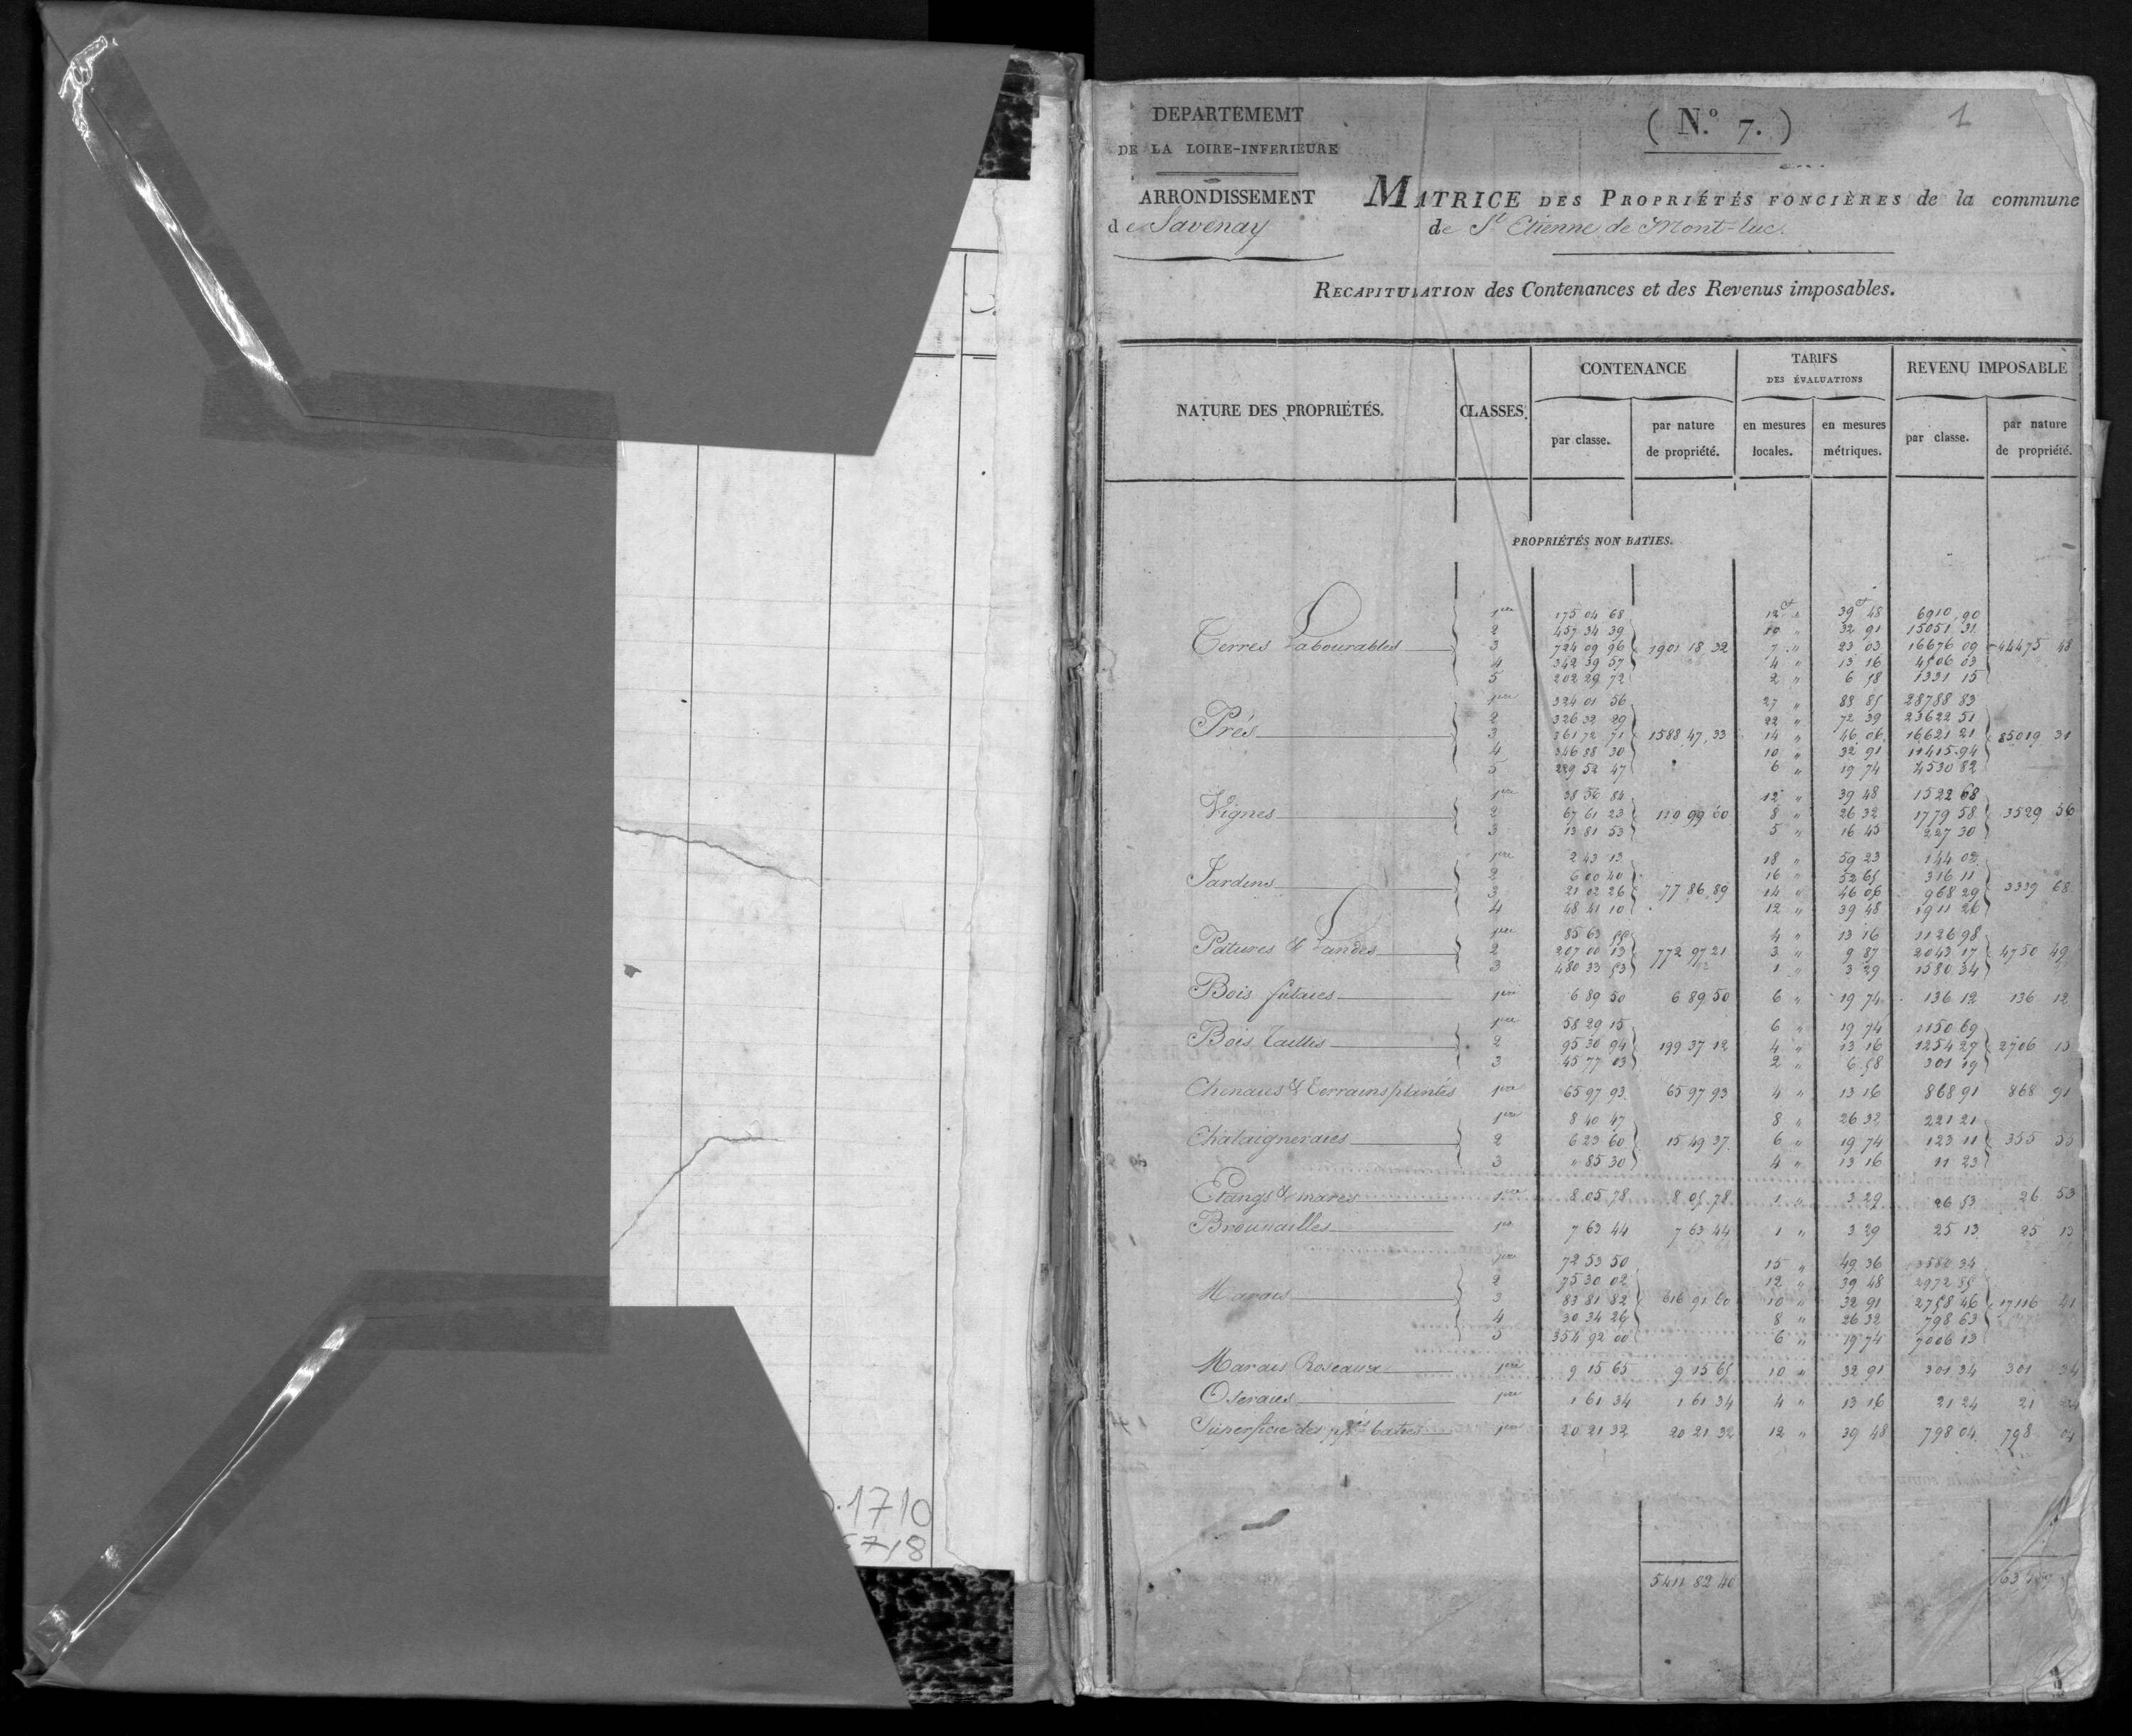 .1710
718
DEPARTEMEMT
DE LA LOIRE-INFERIEURE
ARRONDISSEMENT
de Savenay
( N.º 7. )
1
MATRICE DES PROPRIÉTÉS FONCIÈRES de la commune
de St Etienne de Mont-luc.
RECAPITULATION des Contenances et des Revenus imposables.
NATURE DES PROPRIÉTÉS. CLASSES. CONTENANCE TARIFS DES ÉVALUATIONS REVENU IMPOSABLE
par classe. par nature de propriété. en mesures locales. en mesures métriques. par classe. par nature de propriété.
PROPRIÉTÉS NON BATIES.
1re 175 04 68 12 " 39 48 6910 90
2 457 34 39 10 " 32 91 15051 31
Terres Labourables 3 724 09 96 1901 18 32 7 " 23 03 16676 09 44475 48
4 342 39 57 4 " 13 16 4506 03
5 202 29 72 2 " 6 58 1331 15
1re 324 01 56 27 " 88 85 28788 83
2 326 32 29 22 " 72 39 23622 51
Prés 3 361 72 71 1588 47 33 14 " 46 06 16621 21 85019 31
4 346 88 30 10 " 32 91 11415 94
5 229 52 47 6 " 19 74 4530 82
1re 38 56 84 12 " 39 48 1522 68
Vignes 2 67 61 23 119 99 60 8 " 26 32 1779 58 3529 56
3 13 81 53 5 " 16 45 227 30
1re 2 43 13 18 " 59 23 144 02
2 6 00 40 16 " 52 65 316 11
Jardins 3 21 02 26 77 86 89 14 " 46 06 968 29 3339 68
4 48 41 10 12 " 39 48 1911 26
1re 85 63 55 4 " 13 16 1126 98
Patures & Landes 2 207 00 13 772 97 21 3 " 9 87 2043 17 4750 49
3 480 33 53 1 " 3 29 1580 34
Bois futaies 1re 6 89 50 6 89 50 6 " 19 74 136 12 136 12
1re 58 29 15 6 " 19 74 1150 69
Bois taillis 2 95 30 94 199 37 12 4 " 13 16 1254 27 2706 15
3 45 77 03 2 " 6 58 301 19
Chenaies & terrains plantés 1re 65 97 93 65 97 93 4 " 13 16 868 91 868 91
1re 8 40 47 8 " 26 32 221 21
Chataigneraies 2 6 23 60 15 49 37 6 " 19 74 123 11 355 55
3 " 85 30 4 " 13 16 11 23
Etangs & mares 1re 8 05 78 8 05 78 1 " 3 29 26 53 26 53
Brousailles 1re 7 63 44 7 63 44 1 " 3 29 25 13 25 13
1re 72 53 50 15 " 49 36 3580 34
2 75 30 02 12 " 39 48 2972 85
Marais 3 83 81 82 616 91 60 10 " 32 91 2758 46 17116 41
4 30 34 26 8 " 26 32 798 63
5 354 92 00 6 " 19 74 7006 13
Marais Roseaux 1re 9 15 65 9 15 65 10 " 32 91 301 34 301 34
Oseraies 1re 1 61 34 1 61 34 4 " 13 16 21 24 21 24
Superficie des ppés baties 1re 20 21 32 20 21 32 12 " 39 48 798 04 798 04
5411 82 40